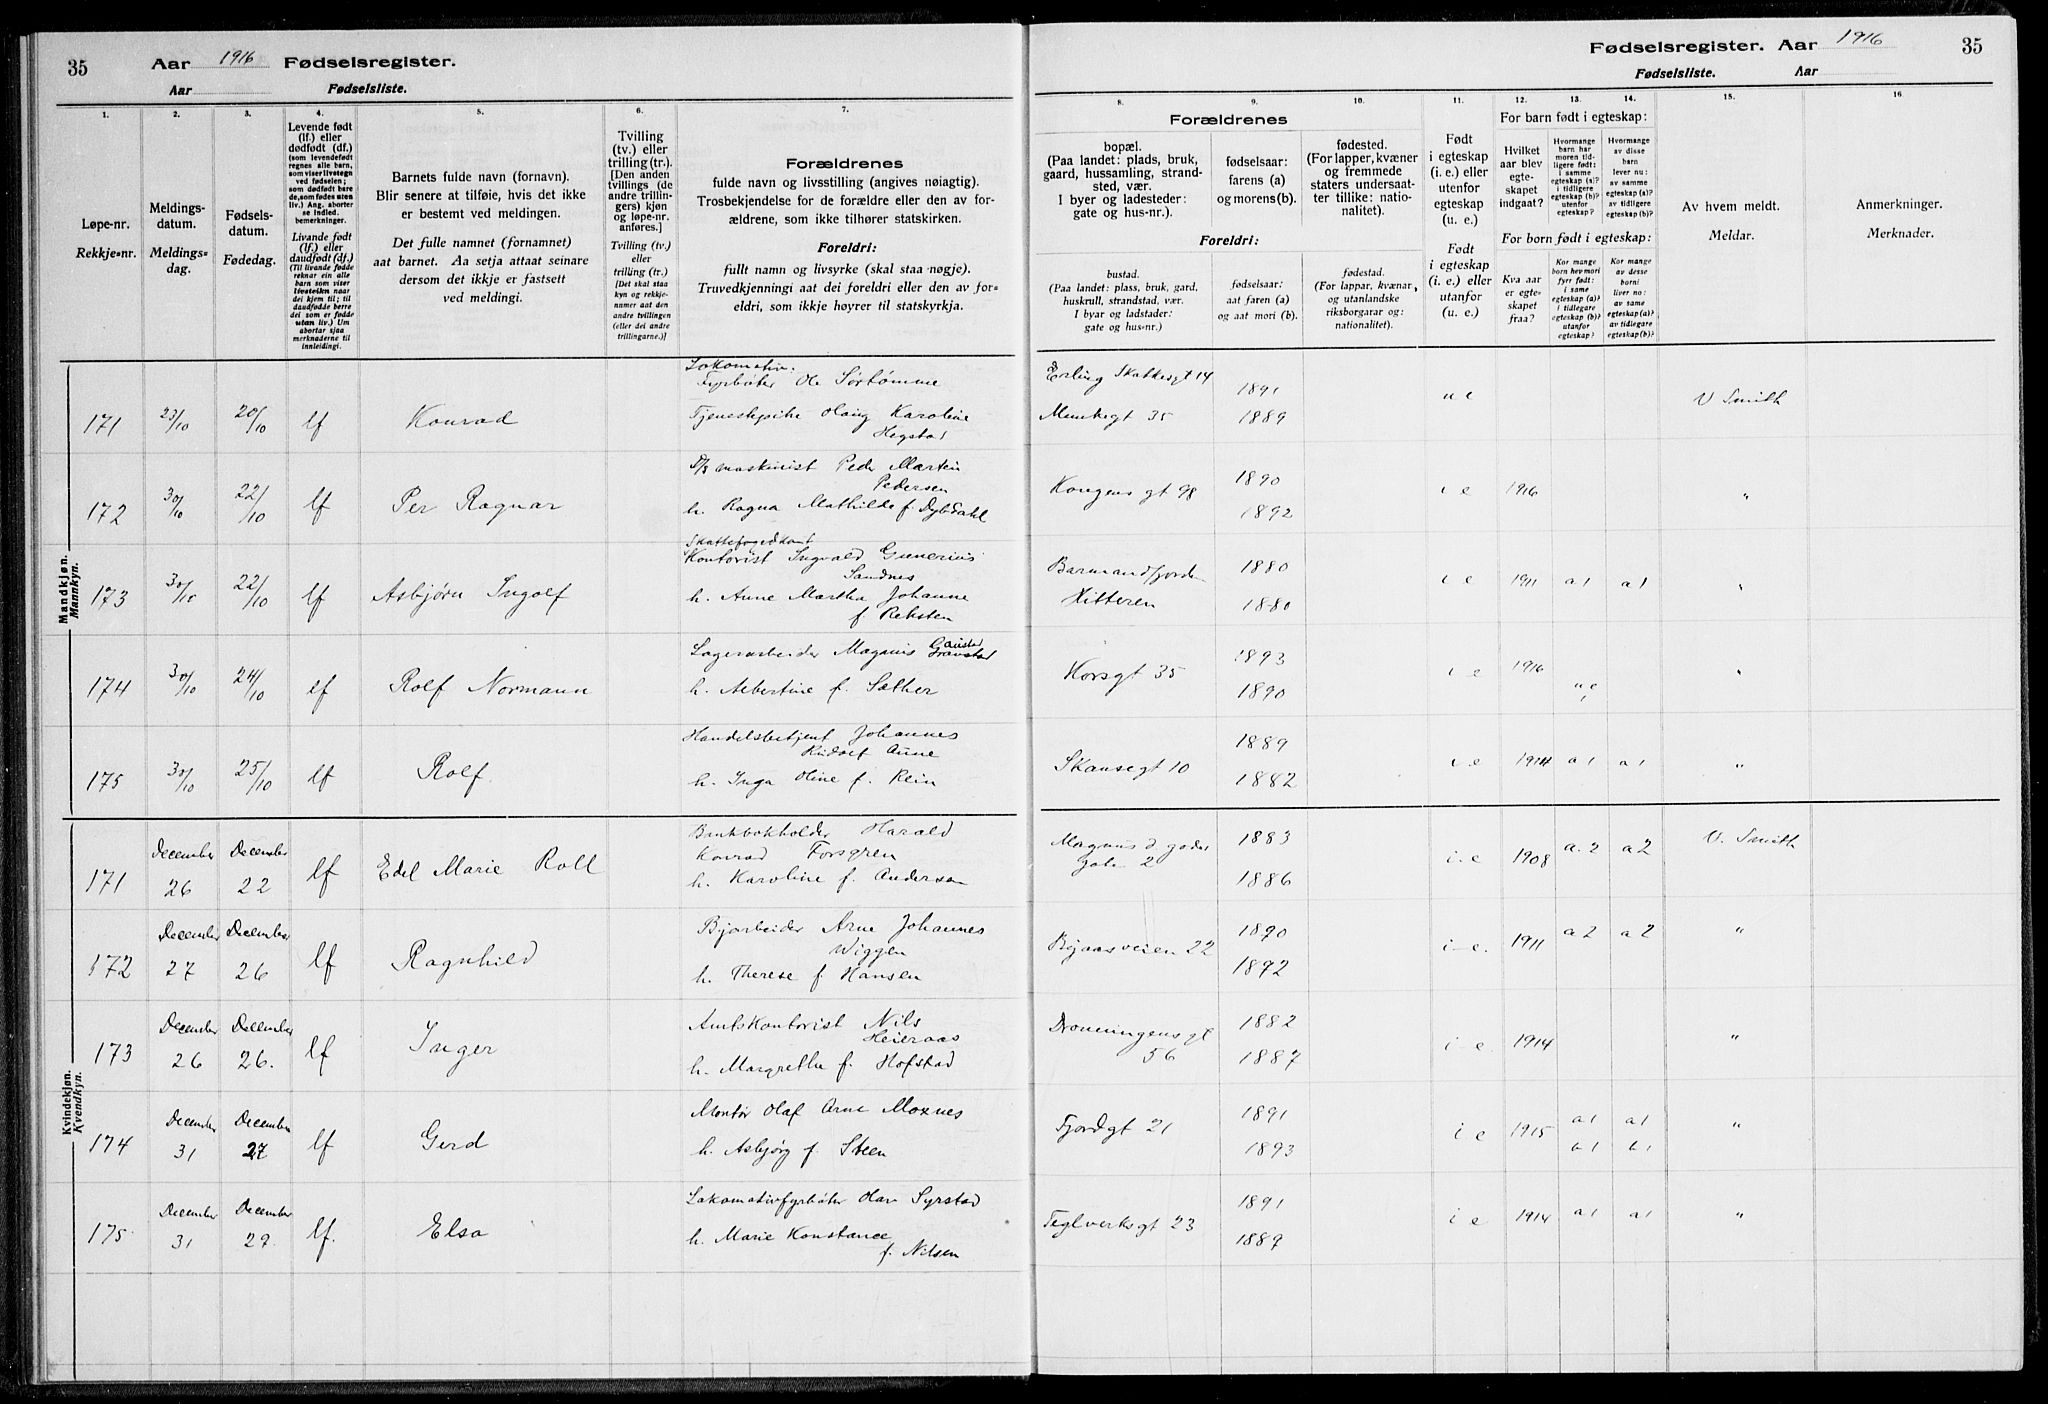 35
Aar 1916 Fødselsregister.
Aar Fødselsliste.
Fødselsregister. Aar 1916
35
Fødselsliste. Aar
1.
Løpe-nr.
Rekkje=nr.
2.
Meldings-
datum.
Meldings=
dag.
3.
Fødsels-
datum.
Fødedag.
4.
Levende født
(lf.) eller
dødfødt (df.)
(som levendefødt
regnes alle barn,
som viser livstegn
ved fødselen;
som dødfødt bare
de, som fødes uten
liv.) Ang. aborter
se indled.
bemerkninger.
Livande født
(lf.) eller
daudfødt (df.)
(Til livande fødde
reknar ein alle
barn som viser
livsteikn naar
dei kjem til; til
daudfødde berre
dei som er fødde
utan liv.) Um
abortar sjaa
merknaderne til
innleidingi.
5.
Barnets fulde navn (fornavn).
Blir senere at tilføie, hvis det ikke
er bestemt ved meldingen.
Det fulle namnet (fornamnet)
aat barnet. Aa setja attaat seinare
dersom det ikkje er fastsett
ved meldingi.
6.
Tvilling
(tv.) eller
trilling (tr.).
[Den anden
tvillings (de
andre trillin-
gers) kjøn
og løpe-nr.
anføres.]
Tvilling (tv.)
eller
trilling (tr.)
[Det skal staa
kyn og rekkje-
numer aat den
andre tvillingen
(eller dei andre
trillingarne.)]
7.
Forældrenes
fulde navn og livsstilling (angives nøiagtig).
Trosbekjendelse for de forældre eller den av for-
ældrene, som ikke tilhører statskirken.
Foreldri:
fullt namn og livsyrke (skal staa nøgje).
Truvedkjenningi aat dei foreldri eller den av for=
eldri, som ikkje høyrer til statskyrkja.
Forældrenes
8.
bopæl.
(Paa landet: plads, bruk,
gaard, hussamling, strand-
sted, vær.
I byer og ladesteder:
gate og hus-nr.).
Foreldri:
bustad.
(Paa landet: plass, bruk, gard,
huskrull, strandstad, vær.
I byar og ladstader:
gate og hus=nr.)
9.
fødselsaar:
farens (a)
og morens (b).
fødselsaar:
aat faren (a)
og aat mori (b).
10.
fødested.
(For lapper, kvæner
og fremmede
staters undersaat-
ter tillike: natio-
nalitet).
fødestad.
(For lappar, kvænar,
og utanlandske
riksborgarar og:
nationalitet).
11.
Født
i egteskap
(i. e.) eller
utenfor
egteskap
(u. e.)
Født
i egteskap
(i. e.) eller
utanfor
(u. e.)
For barn født i egteskap:
12.
Hvilket
aar blev
egte-
skapet
indgaat?
For born født i egteskap:
Kva aar
er egte-
skapet
fraa?
13.
Hvormange
barn har
moren tid-
ligere født:
i samme
egteskap (a)?
i tidligere
egteskap (b)?
utenfor
egteskap?
Kor mange
born hev mori
fyrr født:
i same
egteskap (a)?
i tidlegare
egteskap (b)?
utanfor
egteskap?
14.
Hvormange
av disse
barn
lever nu:
av samme
egteskap (a)?
av tidligere
egteskap (b)?
Kor mange
av desse
borni
liver no:
av same
egteskap (a)?
av tidlegare
egteskap (b)?
15.
Av hvem meldt.
Meldar.
16.
Anmerkninger.
Merknader.
Mandkjøn.
Mannkyn.
171 23/10 20/10 lf Konrad
Lokomotiv-
Fyrbøter Ole Sørtømme
Tjenestepike Karoline
Hegstad
Erling Skakkesgt 14
Munkegt 35
1891
1889
u e
V Smith
172 30/10 22/10 lf Per Ragnar
D/S maskinist Peder Martin
Pedersen
h. Ragna Mathilde f. Dybdahl
Kongens gt 98
1890
1892
i e 1916 "
173 30/10 22/10 lf Asbjørn Ingolf
Skattefogedkont
Kontorist Ingvald Gunerius
Sandnes
h. Anne Martha Johanne
f. Reksten
Barmandfjorden
Hitteren
1880
1880
i e 1911 a 1 a 1 "
174 30/10 24/10 lf Rolf Normann
Lagerarbeider Magnus Gaustad
h. Albertine f. Sæther
Korsgt 35
1893
1890
i e 1916 u e "
175 30/10 25/10 lf Rolf
Handelsbetjent Johannes
Rudolf Aune
h. Inga Oline f. Rein
Skansegt 10
1889
1882
i e 1914 a 1 a 1 "
Kvindekjøn.
Kvendkyn.
171 December 26 December 22 lf Edel Marie Roll
Bankbokholder Harald
Konrad Forsgren
h. Karoline f. Andersen
Magnus d godes
gate 2
1883
1886
i. e 1908 a. 2 a 2 V. Smith
172 December 27 December 26 lf Ragnhild
Bjarbeider Arne Johannes
Wiggen
h. Therese f. Hansen
Byaasveien 22
1890
1892
i-e. 1911 a 2 a 2 "
173 December 26 December 26. lf Inger
Amtskontorist Nils
Heieraas
h. Margrethe f. Hofstad
Dronningens gt
56
1882
1887
i-e. 1914 "
174 December 31 December 27 lf Gerd
Montør Olaf Arne Moxnes
h. Asbjørg f. Steen
Fjordgt 21
1891
1893
i e 1915 a 1 a 1 "
b 1 b 1
175. December 31 December 29. lf. Elsa
Lokomotivfyrbøter Olav Syrstad
h. Marie Konstance
f. Nilsen
Teglverksgt 23
1891
1889
i e 1914 a 1 a 1 "